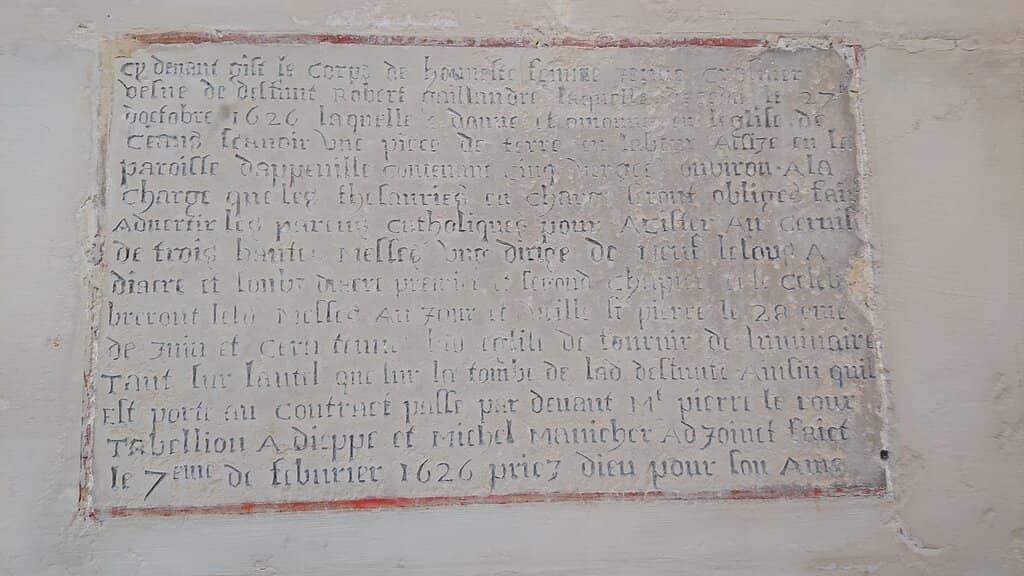 Cy denant gist le Corps de honneste femme
vesue de deffunt Robert gaillandre laquelle deceda le 27e
doctobre 1626 laquelle a donne et omone en leglise de
Ceans scanoir vne piece de terre en labeur Assize en la
paroisse dappeuille contenant cinq verges ou viron A la
Charge que les thesauriers en charge seront obliges fair
Aduertir les parens Catholiques pour Assister Au seruis
de trois hautes Messes vne dirige de neuf lesons A
diacre et soubz diacre premier et second Chapier et le Cele
breront lesd Messes Au Jour et veille st pierre le 28 eme
de Juin et sera tenue lad eglise de fournir de luminaire
Tant sur lautel que sur la tombe de lad deffunte Ainsin quil
Est porte au Contract passe par deuant Mt pierre le roux
Tabellion A dieppe et Michel Manicher AdJoinct faict
le 7eme de feburier 1626 priez dieu pour son Ame